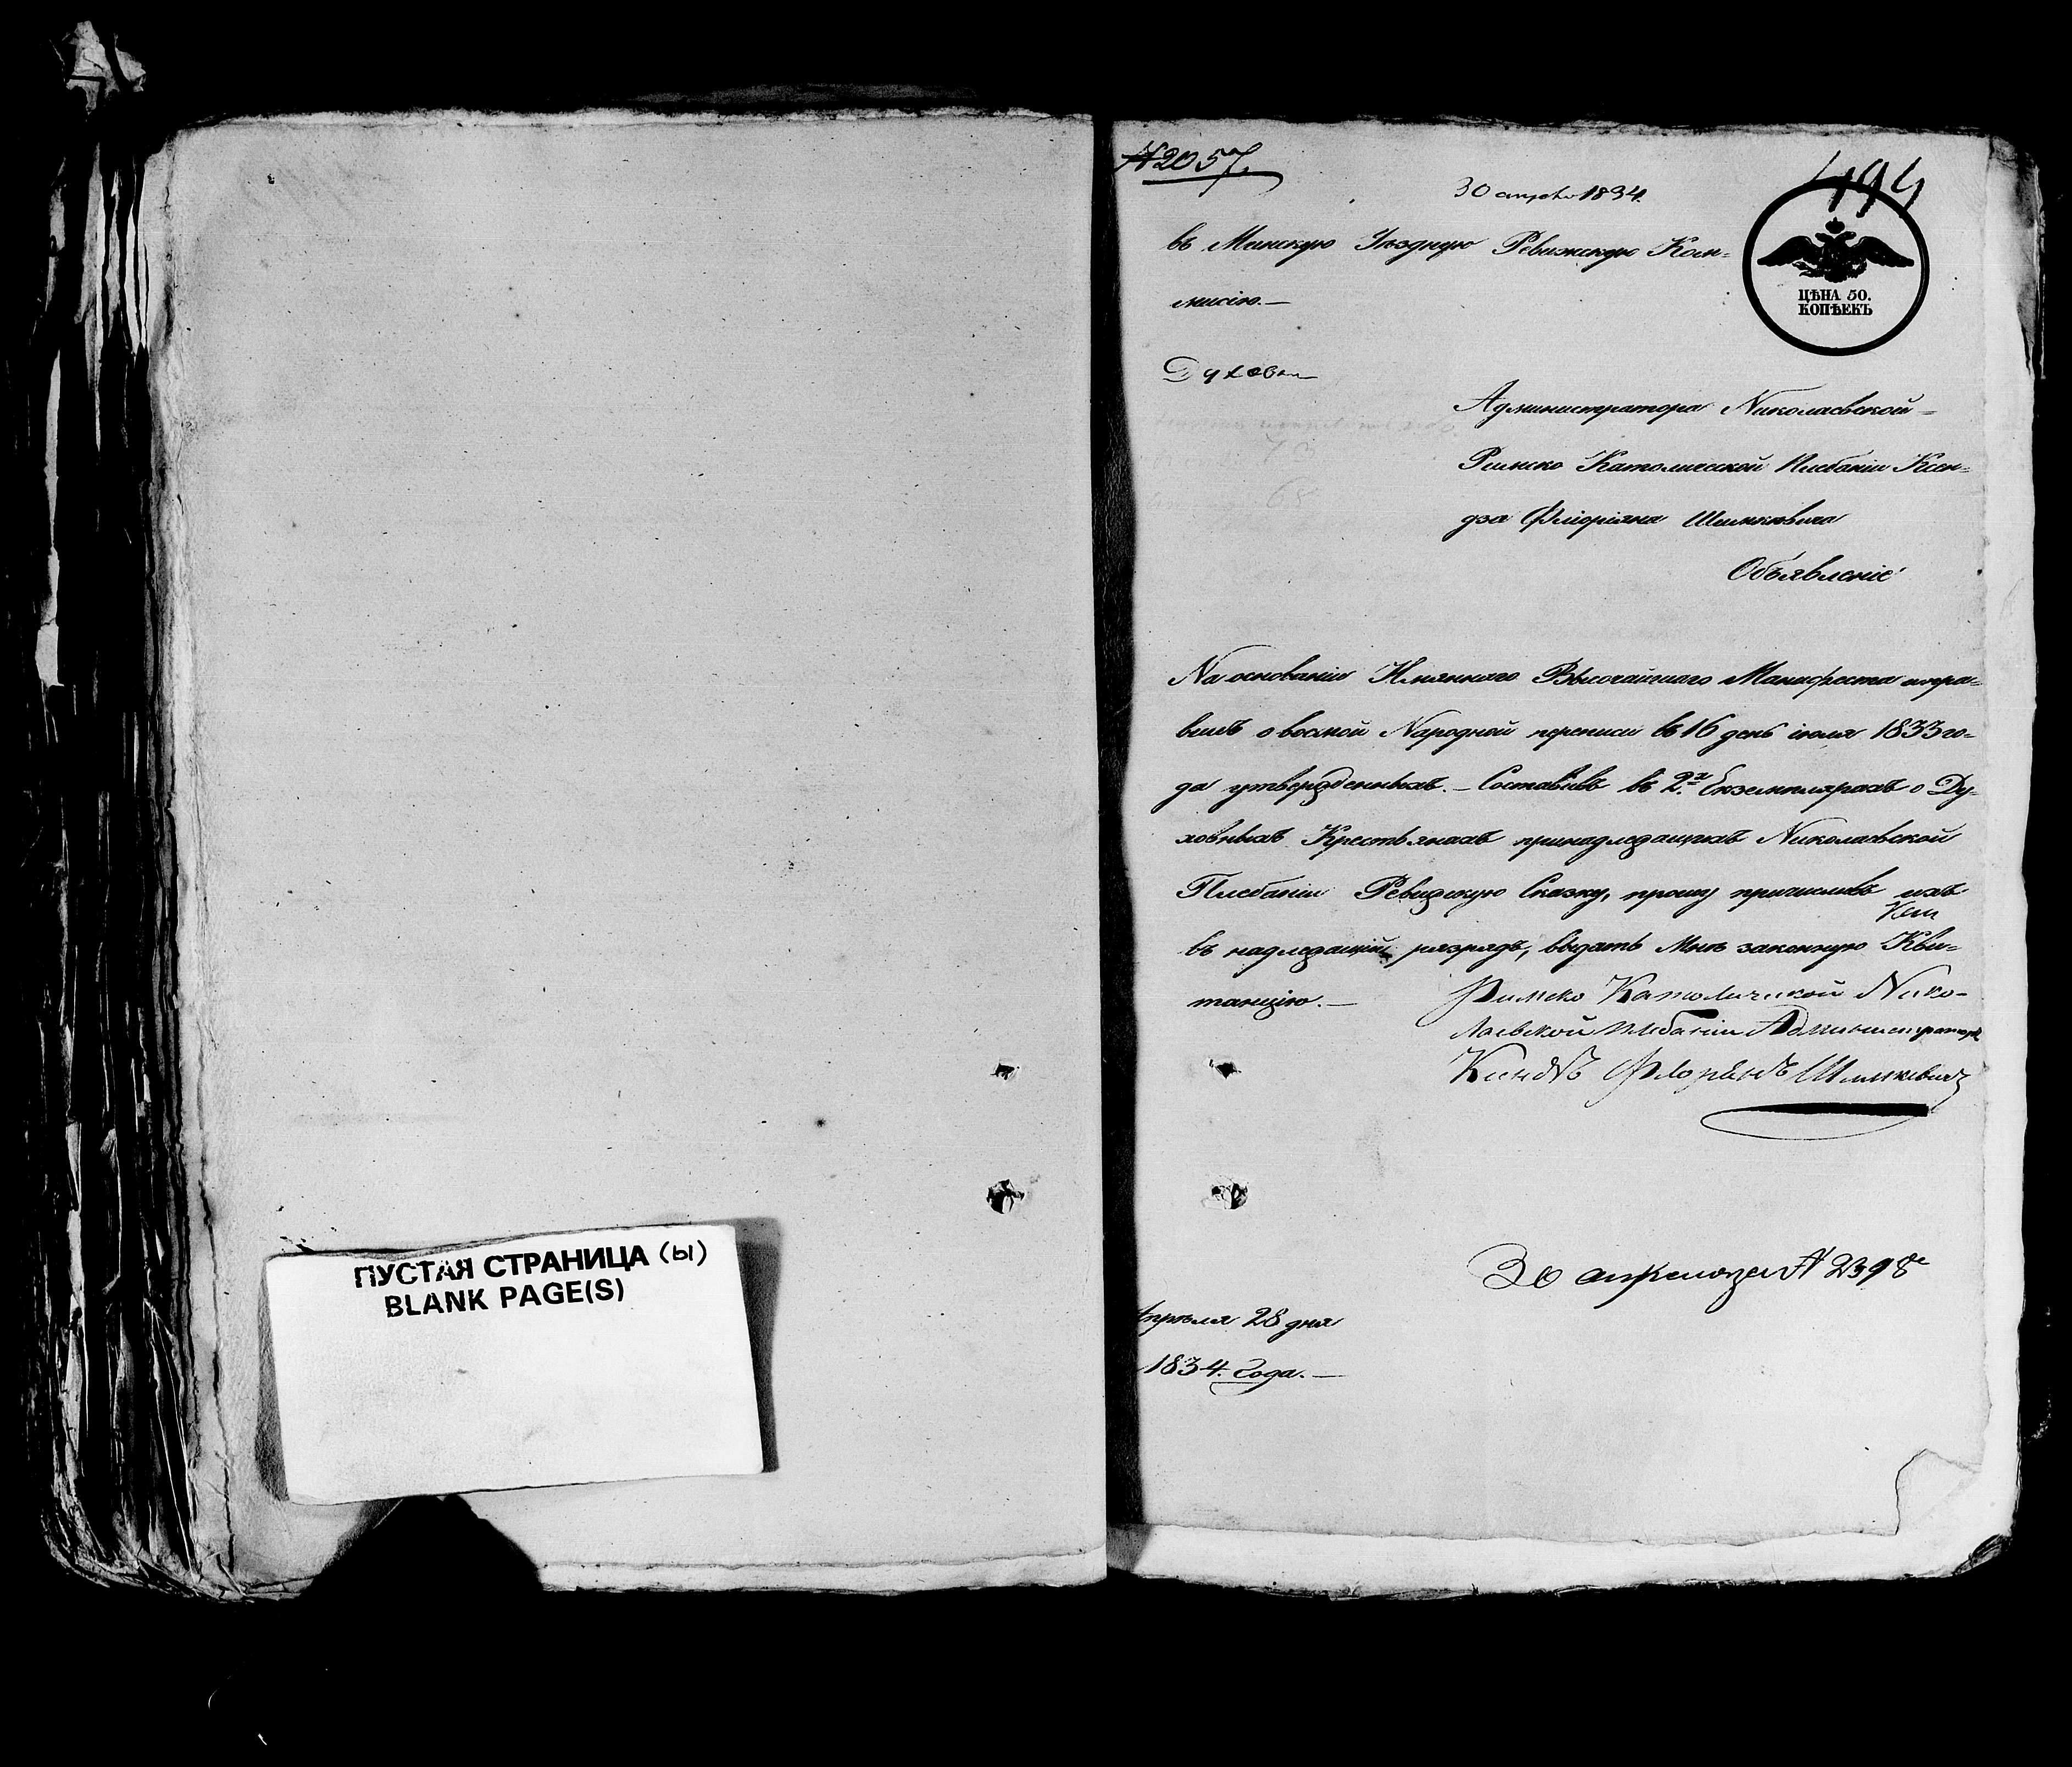 ПУСТАЯ СТРАНИЦА (ы)
BLANK PAGE(S)
№ 2057.
30 апреля 1834.
494
ЦѢНА 50.
КОПѢЕКЪ
въ Минскую Уѣздную Ревижскую Ком-
мисію.—
Духовн
Администратора Николаевской-
Римско Католической Плебаніи Ксен-
дза Фліоріана Шимкевича
Объявленіе
На основаніи Имяннаго Высочайшаго Манифеста и пра-
вилъ о восмой Народной переписи въ 16 день іюля 1833 го-
да утвержденныхъ.— Составивъ въ 2х Екземплярахъ о Ду-
ховныхъ Крестьянахъ принадлежащихъ Николаевской
Плебаніи Ревижскую Сказку, прошу причисливъ ихъ
въ надлежащій разрядъ, выдать Мнѣ законную Кви-
танцію.—
Римско Католической Нико-
лаевской плебаніи Администраторъ
Ксендзъ Флорянъ Шимкевичъ
30 апреля № 2398
Апрѣля 28 дня
1834. Года.—